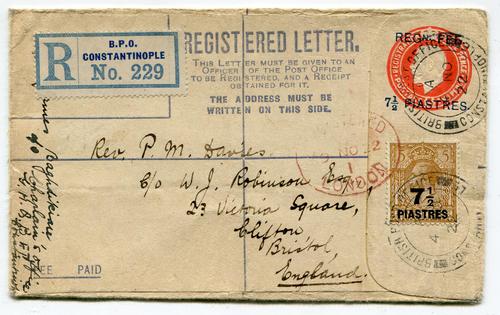 R
B.P.O.
CONSTANTINOPLE
No. 229
REGISTERED LETTER.
THIS LETTER MUST BE GIVEN TO AN
OFFICER OF THE POST OFFICE
TO BE REGISTERED, AND A RECEIPT
OBTAINED FOR IT.
THE ADDRESS MUST BE
WRITTEN ON THIS SIDE.
7½ PIASTRES
Rev. P. M. Davies
c/o W. J. Robinson Esq
23 Victoria Square,
Clifton
Bristol,
England.
LONDON
7½
PIASTRES
BRITISH
FEE PAID